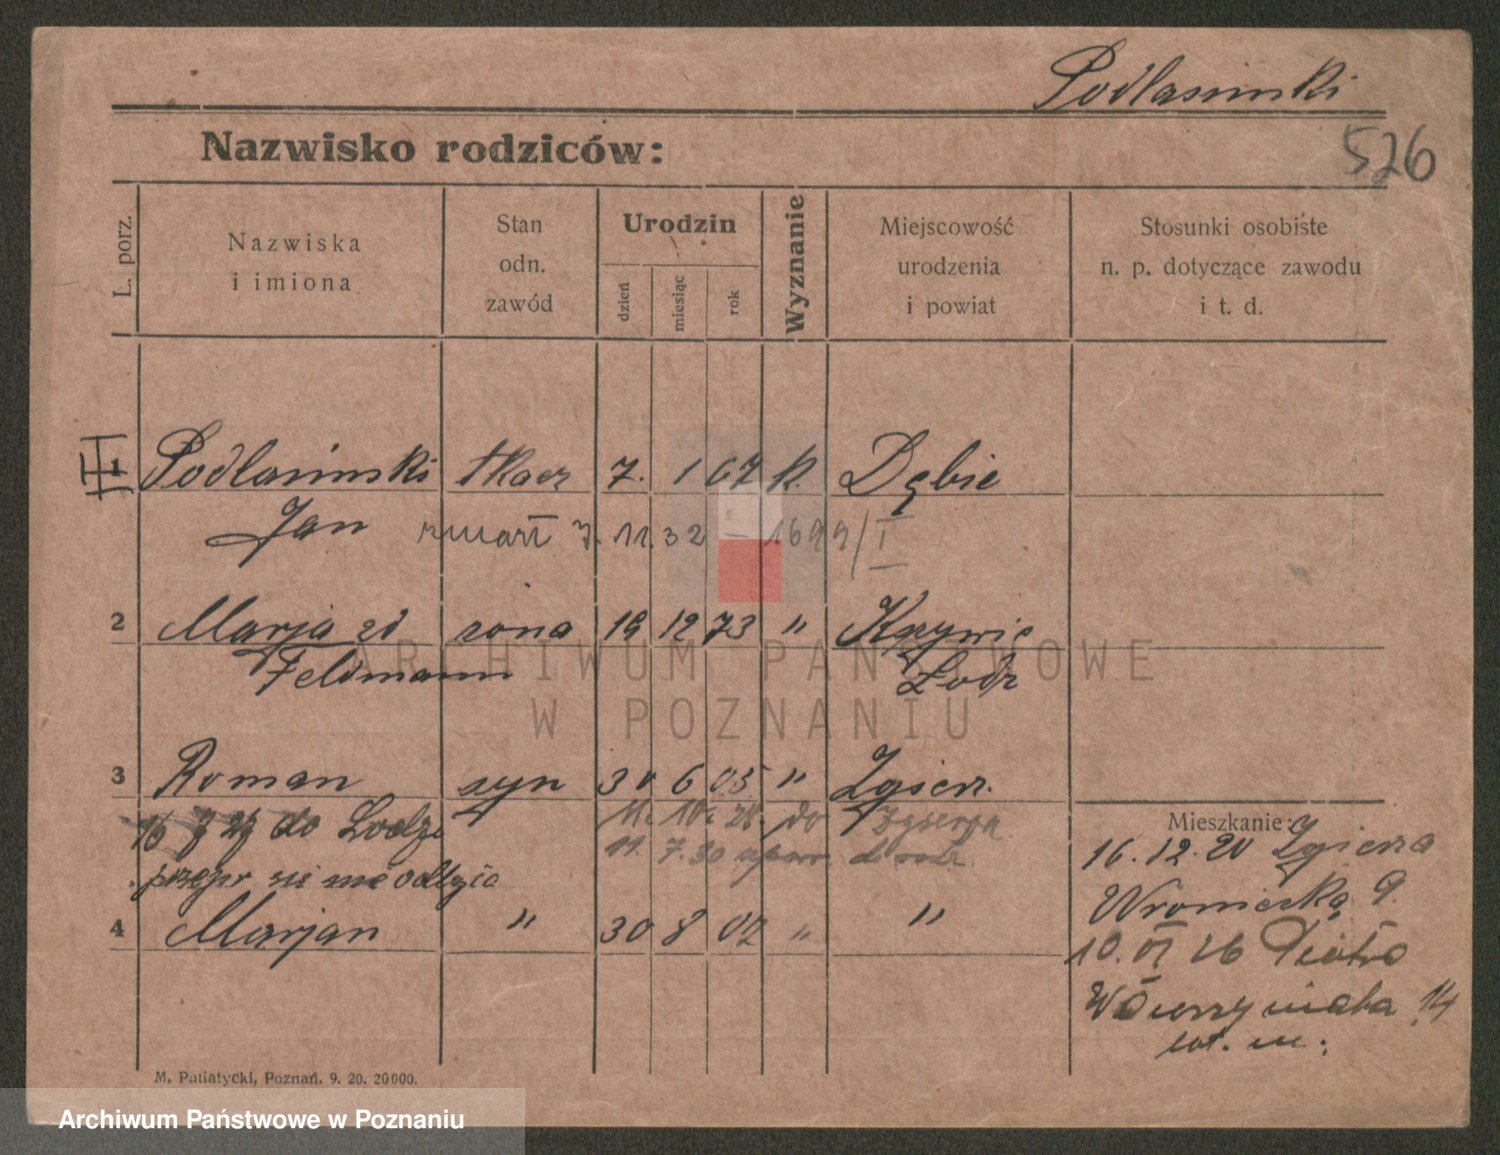 Podlasinski
Nazwisko rodziców:
526
L. porz.
Nazwiska
i imiona
Stan
odn.
zawód
Urodzin
dzień
miesiąc
rok
Wyznanie
Miejscowość
urodzenia
i powiat
Stosunki osobiste
n. p. dotyczące zawodu
i t. d.
1 Podlasinski tkacz 7. 1 67 k. Dębie
Jan zmarł 7. 11. 32 – 1699/I
2 Marja zd żona 19 12 73 " Krzywie
Feldmann Łódź
3 Roman syn 30 6 05 " Zgierz.
16 7 27 do Łodzi 11. 10. 28. do Zgierza
nie odbyło 11. 7. 30
4 Marjan " 30 8 07 " "
Mieszkanie:
16. 12. 20 Zgierza
Wroniecka 9.
10. VI 26 Piotra
Wawrzyniaka 14
M. Putiatycki, Poznań. 9. 20. 20000.
ARCHIWUM PAŃSTWOWE
W POZNANIU
Archiwum Państwowe w Poznaniu